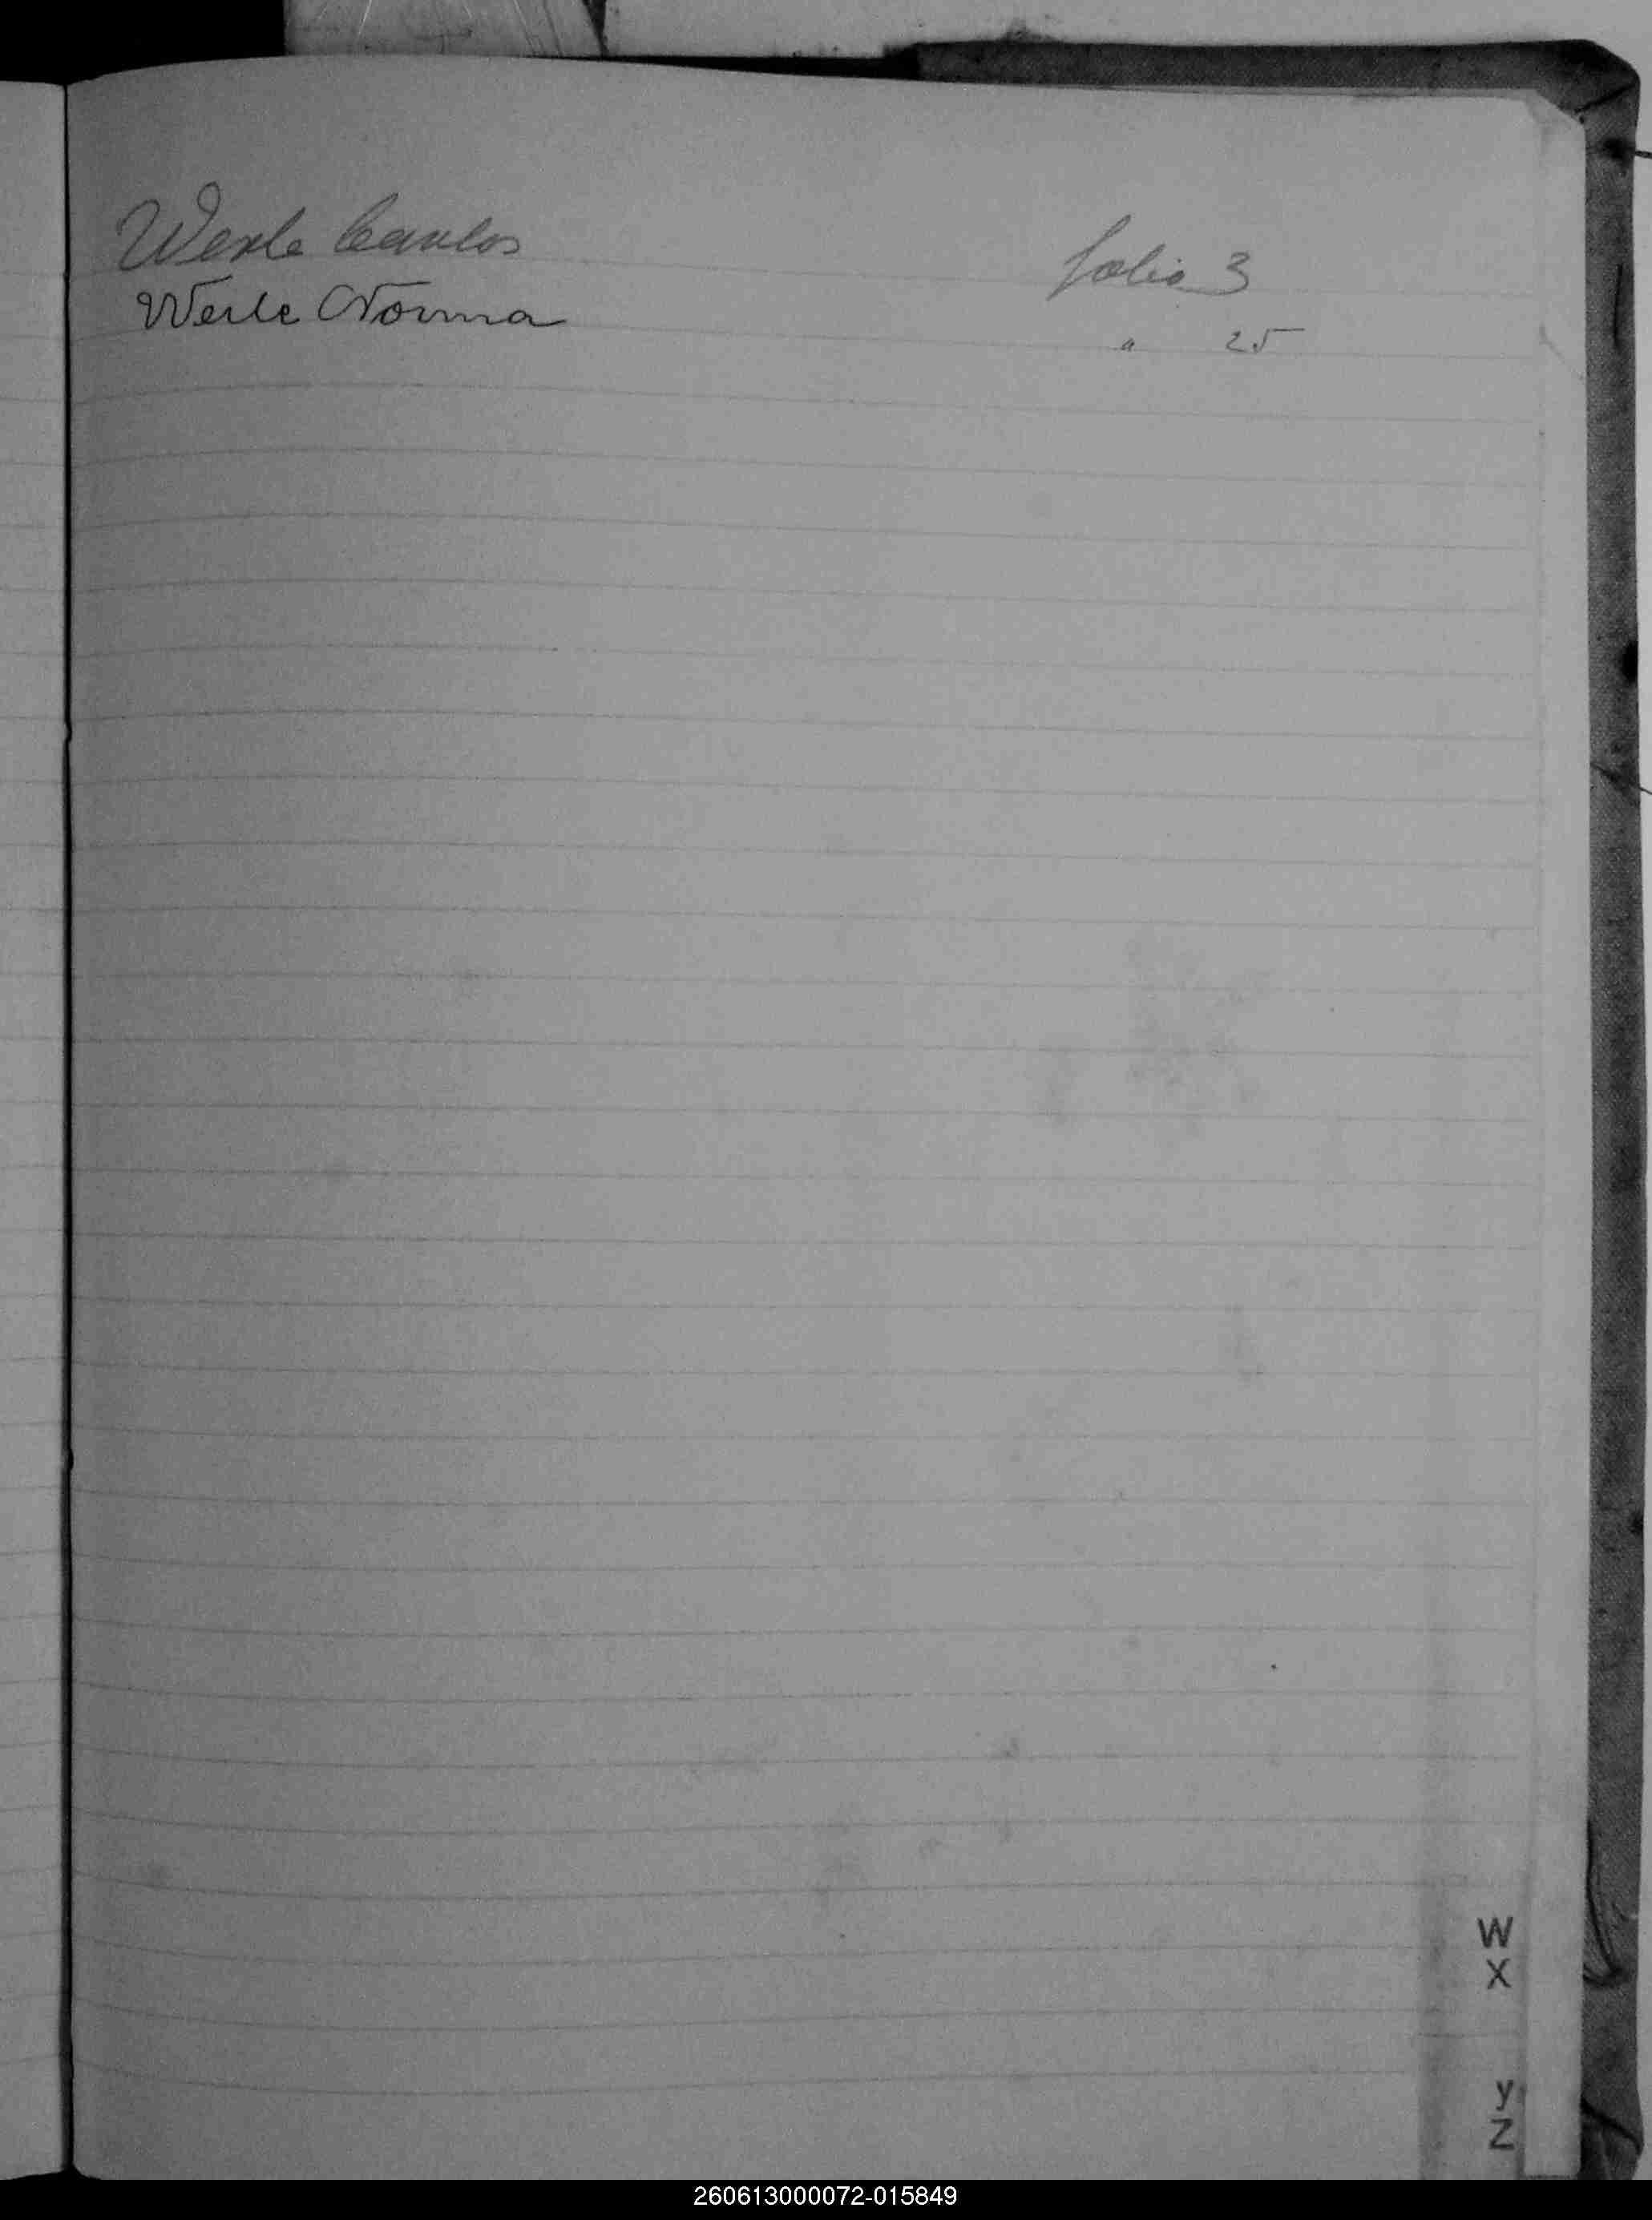 Werle Carlos folio 3
Werle Norma " 25
W
X
y
Z
260613000072-015849